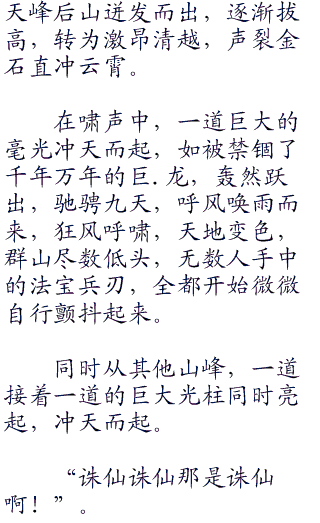 天峰后山迸发而出，逐渐拔
高，转为激昂清越，声裂金
石直冲云霄。
在啸声中，一道巨大的
毫光冲天而起，如被禁锢了
千年万年的巨.龙，轰然跃
出，驰骋九天，呼风唤雨而
来，狂风呼啸，天地变色，
群山尽数低头，无数人手中
的法宝兵刃，全都开始微微
自行颤抖起来。
同时从其他山峰，一道
接着一道的巨大光柱同时亮
起，冲天而起。
“诛仙诛仙那是诛仙
啊！”。